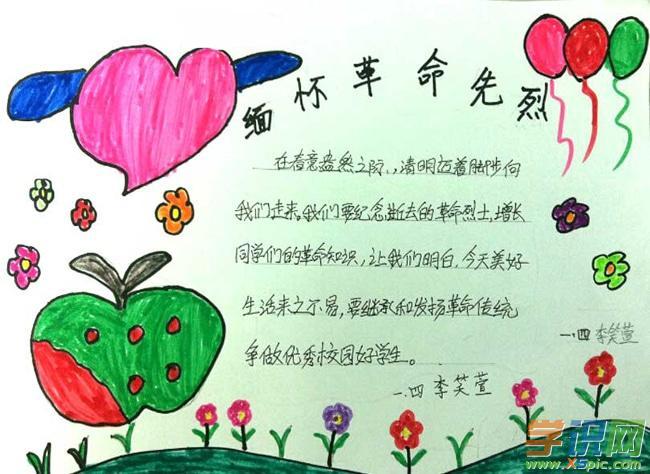 缅怀革命先烈
在春意盎然之际,,清明迈着脚步向
我们走来,我们要纪念逝去的革命烈士,增长
同学们的革命知识,让我们明白,今天美好
生活来之不易,要继承和发扬革命传统
争做优秀校园好学生。
一.四 李笑萱
一.四 李笑萱
学识网
www.X5pic.com